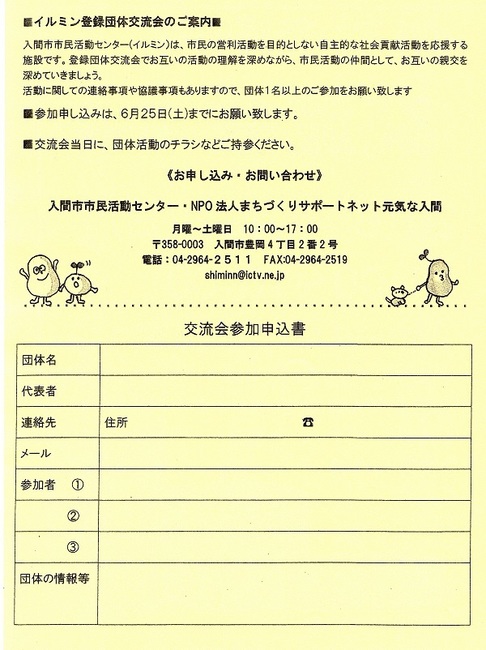 ■イルミン登録団体交流会のご案内■
入間市市民活動センター(イルミン)は、市民の営利活動を目的としない自主的な社会貢献活動を応援する
施設です。登録団体交流会でお互いの活動の理解を深めながら、市民活動の仲間として、お互いの親交を
深めていきましょう。
活動に関しての連絡事項や協議事項もありますので、団体1名以上のご参加をお願い致します
■参加申し込みは、6月25日(土)までにお願い致します。
■交流会当日に、団体活動のチラシなどご持参ください。
《お申し込み・お問い合わせ》
入間市市民活動センター・NPO法人まちづくりサポートネット元気な入間
月曜～土曜日 10:00～17:00
〒358-0003 入間市豊岡4丁目2番2号
電話:04-2964-2511 FAX:04-2964-2519
shiminn@ictv.ne.jp
交流会参加申込書
団体名
代表者
連絡先 住所 ☎
メール
参加者 ①
②
③
団体の情報等